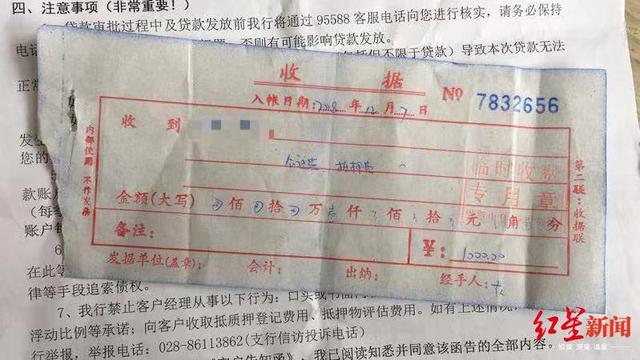 四、注意事项（非常重要！）
贷款审批过程中及贷款发放前我行将通过 95588 客服电话向您进行核实，请务必保持
电话
否则有可能影响贷款发放。
包括但不限于贷款）导致本次贷款无法
正常
收 据
入帐日期：2018年12月7日
No 7832656
内部使用 不作发票
收到
抵押费
临时收据
专用章
第二联：收据联
金额（大写） 佰 拾 万 壹 仟 佰 拾 元 角 分
备注：
¥：1000.00
发据单位（盖章）： 会计： 出纳： 经手人：
发生
您的
款账户
（每
账户
6
在此等
律等手段追索债权。
7、我行禁止客户经理从事以下行为：口头或书面
浮动比例等承诺；向客户收取抵质押登记费用、抵押物评估费用。如有上述情况，
行举报，举报电话：028-86113862（支行信访投诉电话）
客户告知函》，我已阅读知悉并同意该函告的全部内容。
红星新闻